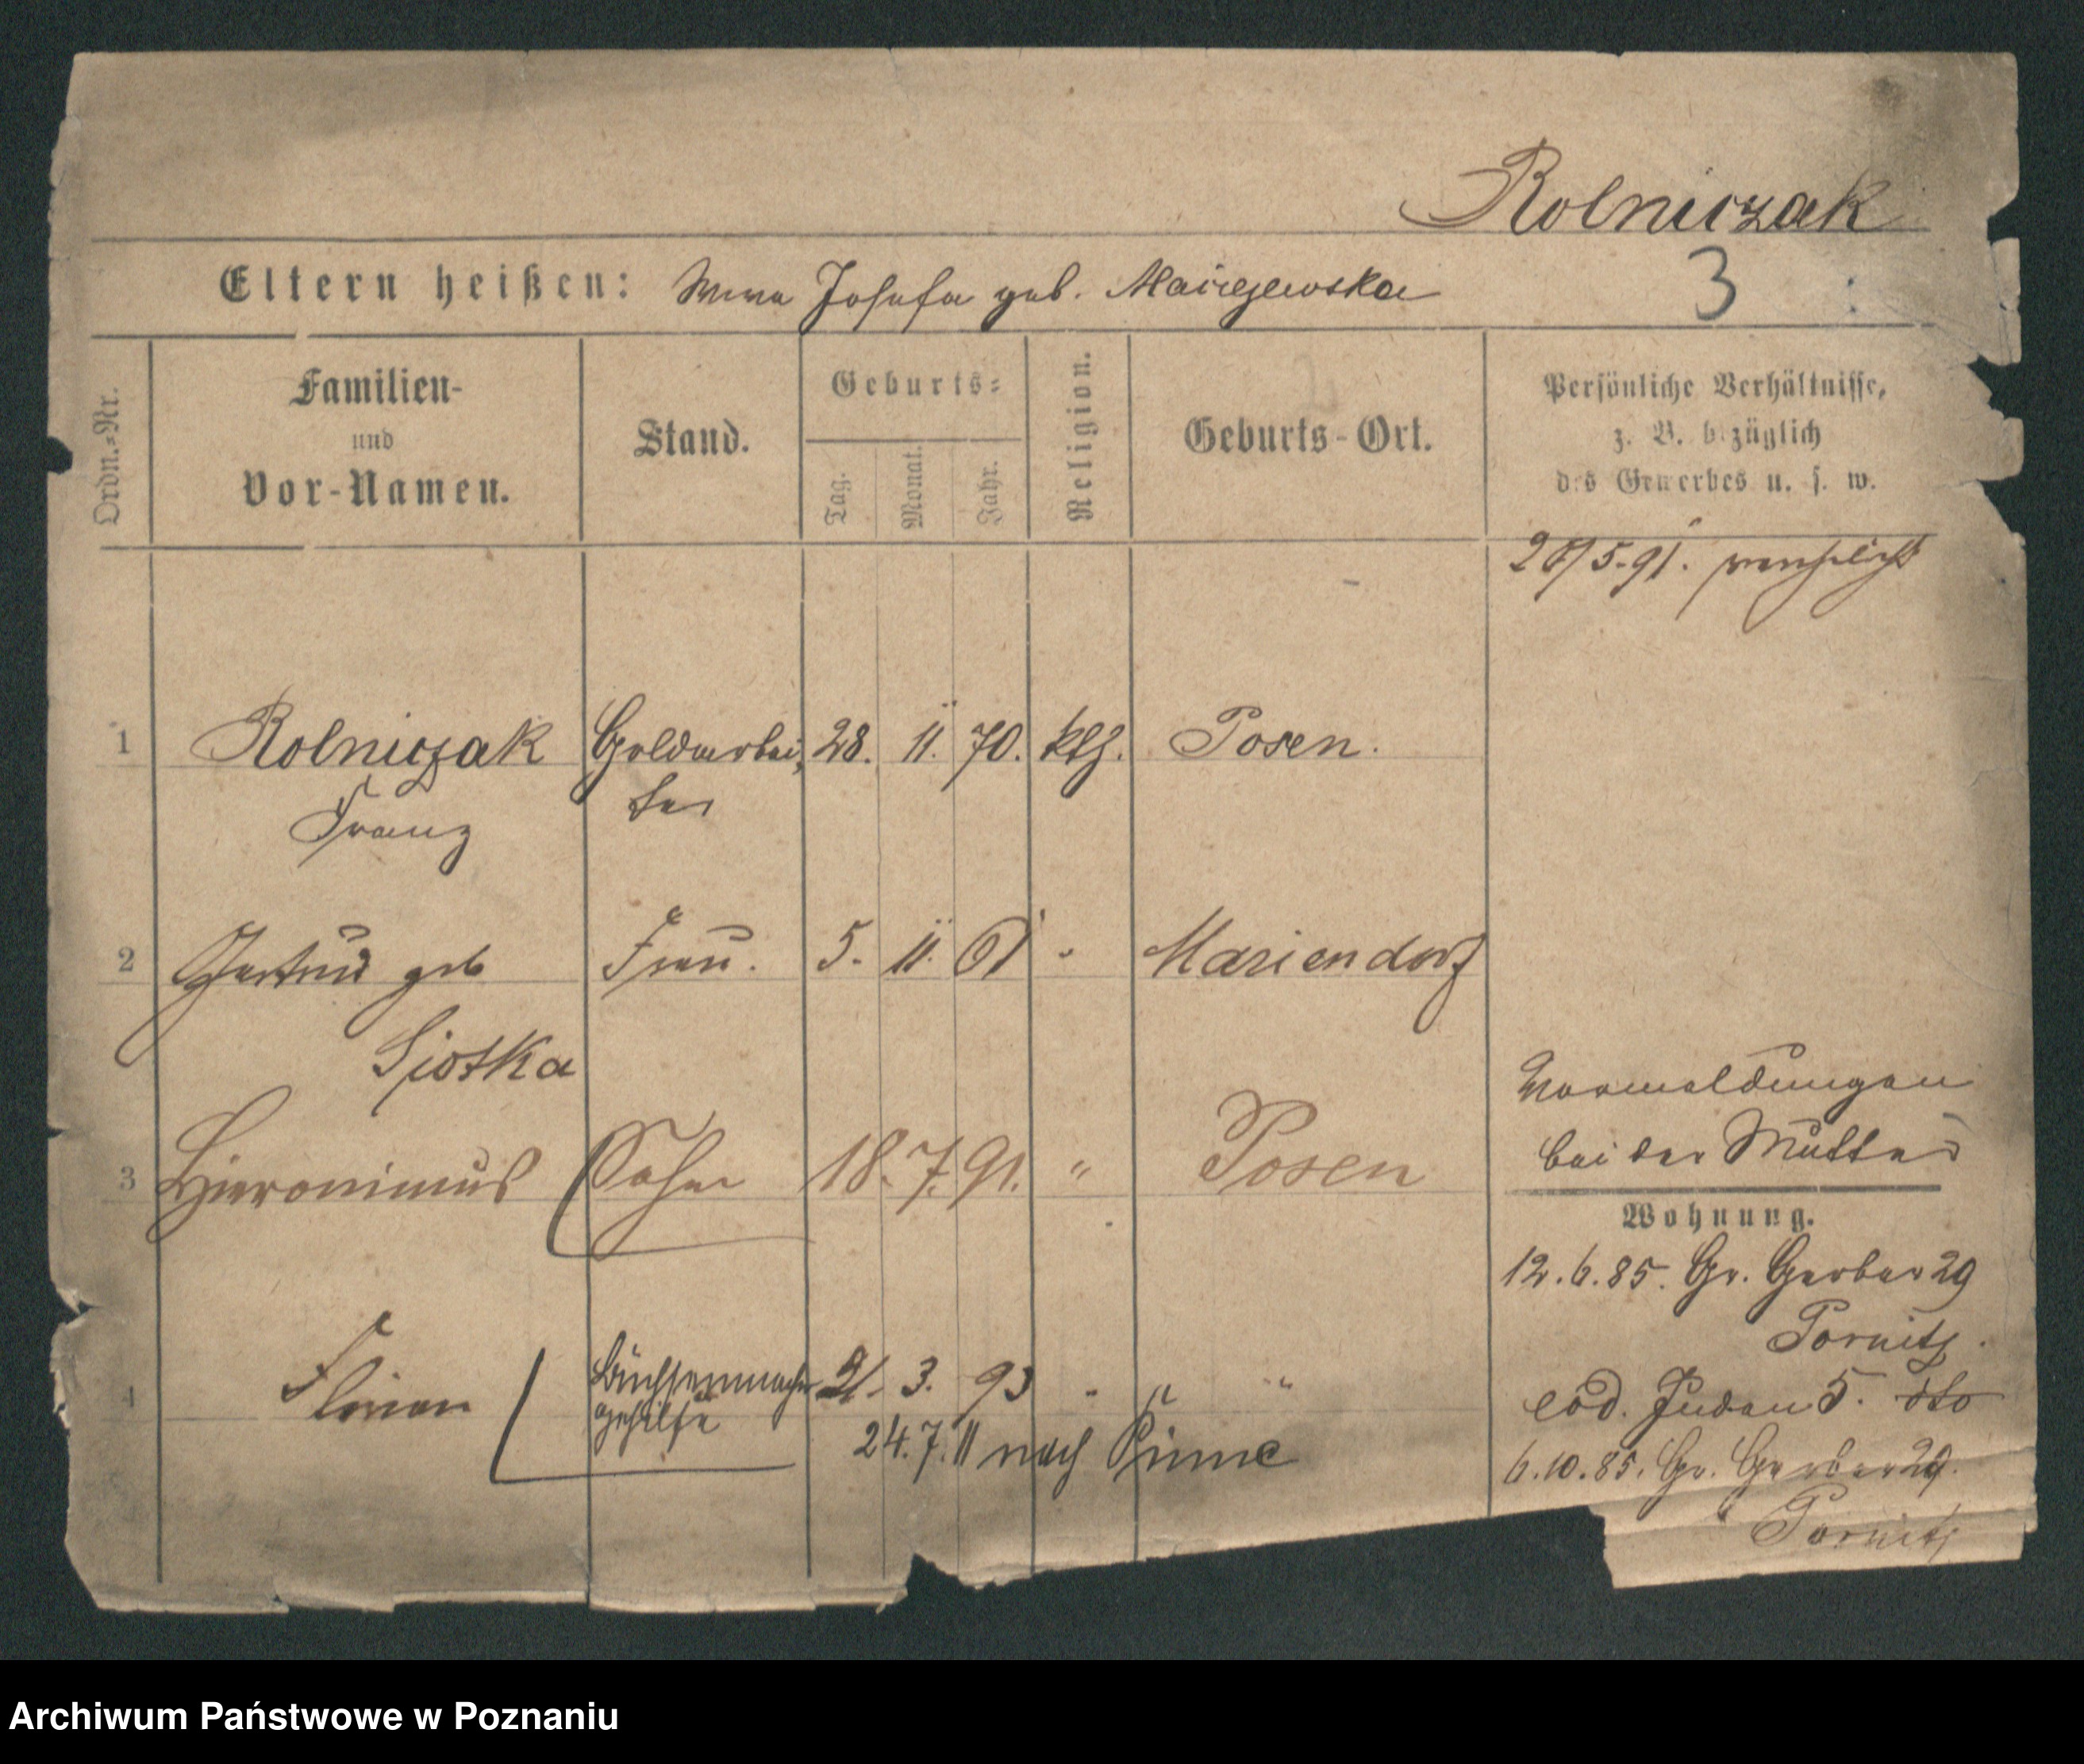 Rolniczak
3
Eltern heißen: Wwe Josefa geb. Maciejewska
Ordn.-Nr.
Familien-
und
Vor-Namen.
Stand.
Geburts-
Tag.
Monat.
Jahr.
Religion.
Geburts-Ort.
Persönliche Verhältnisse,
z. B. bezüglich
des Gewerbes u. s. w.
5.91. verehelicht
1 Rolniczak Goldarbei 28. 11. 70. kth. Posen.
Franz ter
2 Gertrud geb Frau. 5. 11. 61 " Mariendorf
Siotka
Vormeldungen
bei der Mutter
3 Hieronimus Sohn 18. 7. 91. " Posen
Wohnung.
12.6.85. Gr. Gerber 29
Pornitz.
4 Florian Büchsenmacher 21. 3. 93 " "
gehilfe
eod. Juden 5. dto
24.7.11 nach Pinne
6.10.85. Gr. Gerber 29.
Pornitz
Archiwum Państwowe w Poznaniu